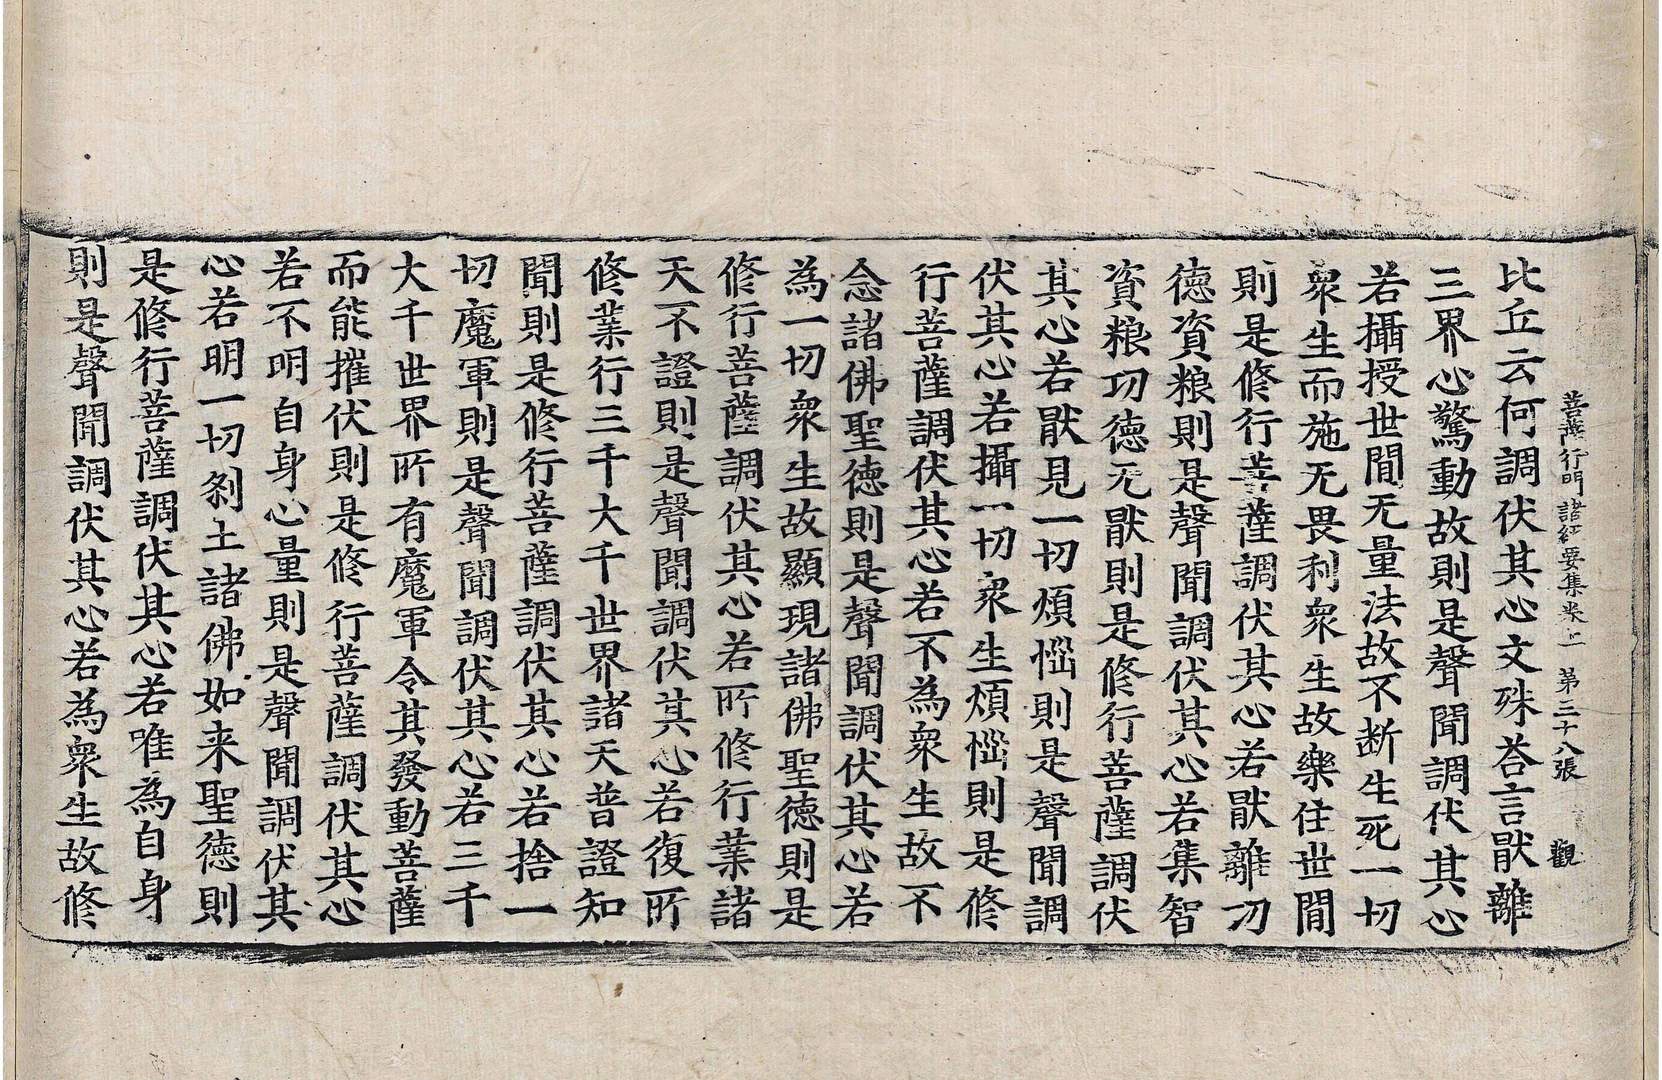 菩薩行門諸經要集卷上 第三十八張 觀
比丘云何調伏其心文殊荅言猒離
三界心驚動故則是聲聞調伏其心
若攝授世間无量法故不断生死一切
衆生而施无畏利衆生故樂住世間
則是修行菩薩調伏其心若猒離功
德資粮則是聲聞調伏其心若集智
資粮功德无猒則是修行菩薩調伏
其心若猒見一切煩惱則是聲聞調
伏其心若攝一切衆生煩惱則是修
行菩薩調伏其心若不為衆生故不
念諸佛聖德則是聲聞調伏其心若
為一切衆生故顯現諸佛聖德則是
修行菩薩調伏其心若所修行業諸
天不證則是聲聞調伏其心若復所
修業行三千大千世界諸天普證知
聞則是修行菩薩調伏其心若捨一
切魔軍則是聲聞調伏其心若三千
大千世界所有魔軍令其發動菩薩
而能摧伏則是修行菩薩調伏其心
若不明自身心量則是聲聞調伏其
心若明一切刹土諸佛如来聖德則
是修行菩薩調伏其心若唯為自身
則是聲聞調伏其心若為衆生故修